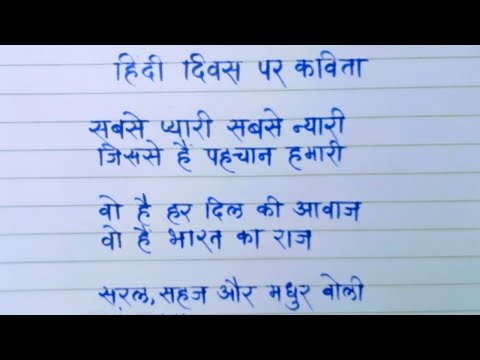 हिंदी दिवस पर कविता
सबसे प्यारी सबसे न्यारी
जिससे हैं पहचान हमारी
वो है हर दिल की आवाज
वो हैं भारत का राज
सरल, सहज और मधुर बोली